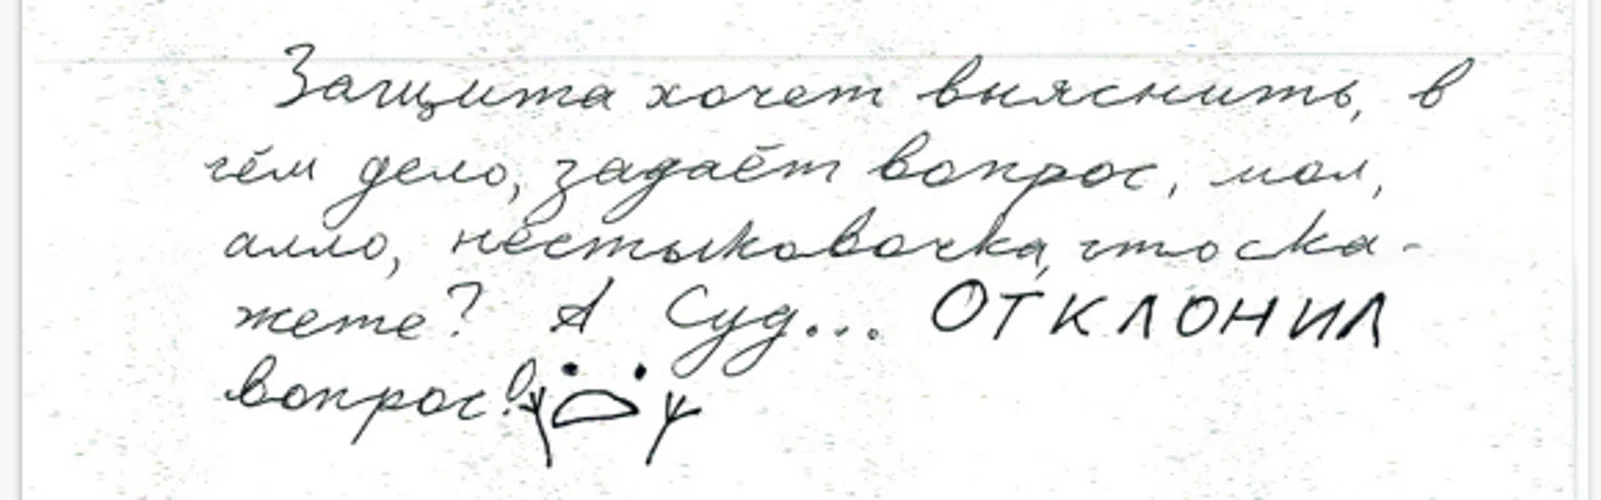 Защита хочет выяснить, в
чём дело, задаёт вопрос, мол,
алло, нестыковочка, что ска-
жете? А Суд... ОТКЛОНИЛ
вопрос!